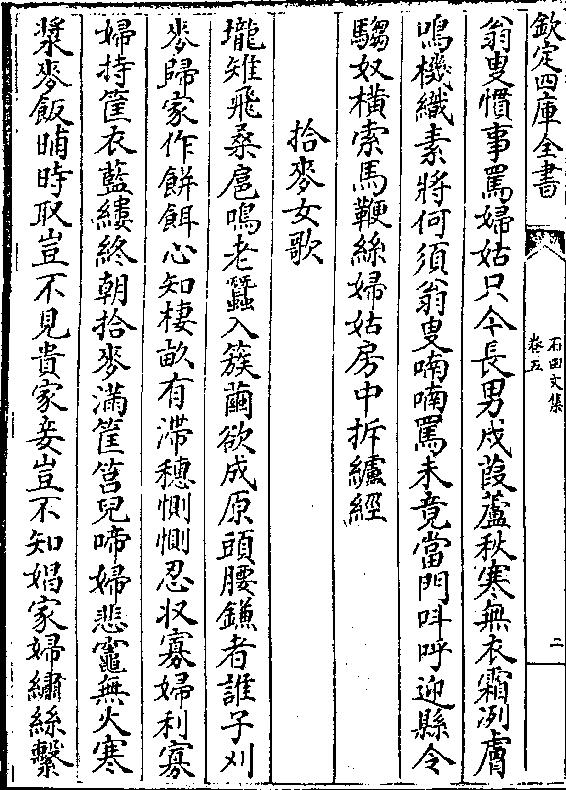 欽定四庫全書
石田文集
卷五
二
翁叟慣事罵婦姑只今長男戍葭蘆秋寒無衣霜冽膚
鳴機織素將何須翁叟喃喃罵未竟當門叫呼迎縣令
騶奴橫索馬鞭絲婦姑房中拆纑經
拾麥女歌
壠雉飛桑扈鳴老蠶入簇繭欲成原頭腰鎌者誰子刈
麥歸家作餅餌心知棲畝有滯穗惻惻忍收寡婦利寡
婦持筐衣藍縷終朝拾麥滿筐筥兒啼婦悲竈無火寒
漿麥飯晡時取豈不見貴家妾豈不知娼家婦繡絲繫